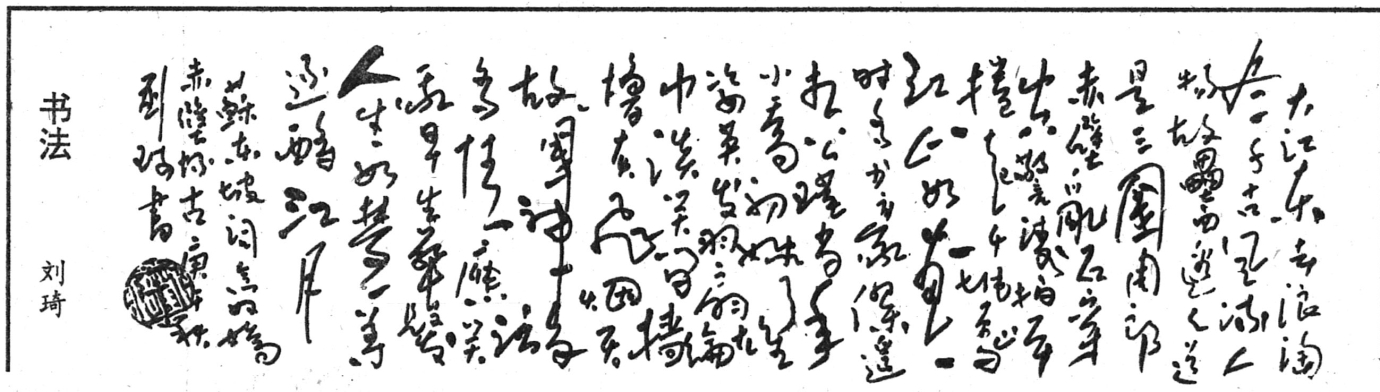 大江东去浪淘
尽千古风流人
物故壘西边人道
是三國周郎
赤壁乱石穿
空惊涛拍岸
捲起千堆雪
江山如画一
时多少豪杰遥
想公瑾当年
小乔初嫁了雄
姿英发羽扇纶
巾谈笑间樯
橹灰飞烟灭
故國神游
多情应笑
我早生华发
人生如梦一尊
还酹江月
蘇东坡词念奴娇
赤壁怀古庚午秋
刘琦書
书法
刘琦